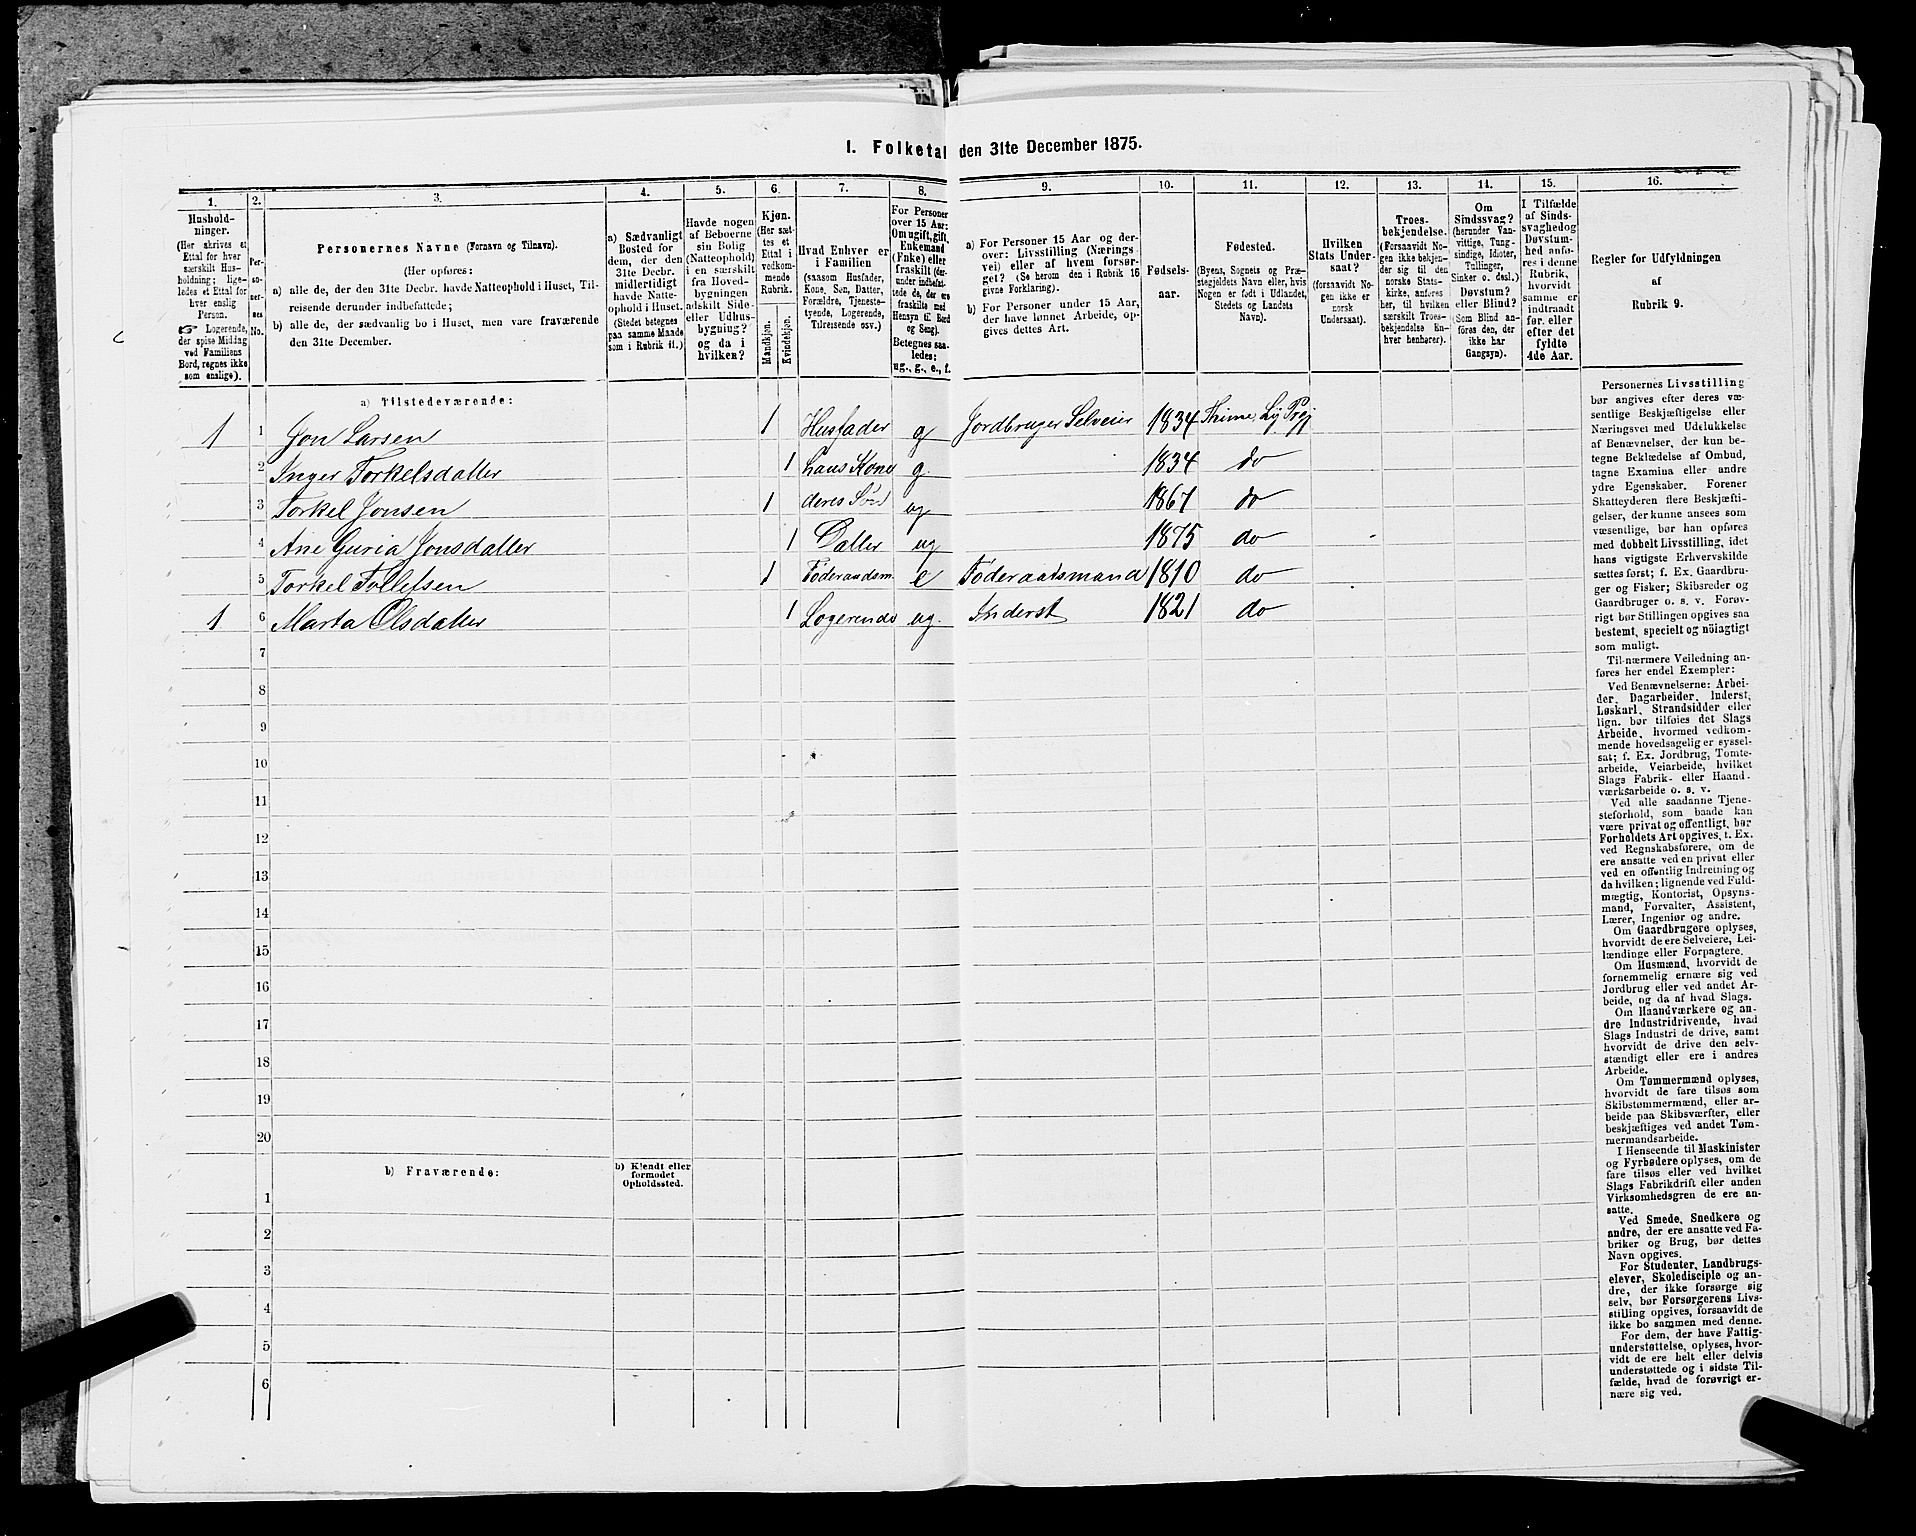 I. Folketal den 31te December 1875.
1. 2. 3. 4. 5. 6. 7. 8. 9. 10. 11. 12. 13. 14. 15. 16.
Hushold-
ninger.
(Her skrives et
Ettal for hver
særskilt Hus-
holdning; lige-
ledes et Ettal for
hver enslig
Person.
☞ Logerende,
der spise Middag
ved Familiens
Bord, regnes ikke
som enslige).
Per-
so-
ner-
nes
No.
Personernes Navne (Fornavn og Tilnavn).
(Her opføres:
a) alle de, der den 31te Decbr. havde Natteophold i Huset, Til-
reisende derunder indbefattede;
b) alle de, der sædvanlig bo i Huset, men vare fraværende
den 31te December.
a) Sædvanligt
Bosted for
dem, der den
31te Decbr.
midlertidigt
havde Natte-
ophold i Huset.
(Stedet betegnes
paa samme Maade
som i Rubrik 11.)
Havde nogen
af Beboerne
sin Bolig
(Natteophold)
i en særskilt
fra Hoved-
bygningen
adskilt Side-
eller Udhus-
bygning?
og da i
hvilken?
Kjøn.
(Her sæt-
tes et
Ettal i
vedkom-
mende
Rubrik.
Mandkjøn.
Kvindekjøn.
Hvad Enhver er
i Familien
(saasom Husfader,
Kone, Søn, Datter,
Forældre, Tjeneste-
tyende, Logerende,
Tilreisende osv.)
For Personer
over 15 Aar:
Om ugift, gift,
Enkemand
(Enke) eller
fraskilt (der-
under indbefat-
tede de, der ere
fraskilte med
Hensyn til Bord
og Seng).
Betegnes saa-
ledes:
ug., g., e., f.
a) For Personer 15 Aar og der-
over: Livsstilling (Nærings-
vei) eller af hvem forsør-
get? (Se herom den i Rubrik 16
givne Forklaring).
b) For Personer under 15 Aar,
der have lønnet Arbeide, op-
gives dettes Art.
Fødsels-
aar.
Fødested.
(Byens, Sognets og Præ-
stegjeldets Navn eller, hvis
Nogen er født i Udlandet,
Stedets og Landets
Navn).
Hvilken
Stats Under-
saat?
(forsaavidt No-
gen ikke er
norsk
Undersaat).
Troes-
bekjendelse.
(Forsaavidt No-
gen ikke bekjen-
der sig til den
norske Stats-
kirke, anføres
her, til hvilken
særskilt Troes-
bekjendelse En-
hver henhører).
Om
Sindssvag?
(herunder Van-
vittige, Tung-
sindige, Idioter,
Tullinger,
Sinker o. desl.)
Døvstum?
eller Blind?
(Som Blind an-
føres den, der
ikke har
Gangsyn).
I Tilfælde
af Sinds-
svaghed og
Døvstum-
hed anfø-
res i denne
Rubrik,
hvorvidt
samme er
indtraadt
før. eller
efter det
fyldte
4de Aar.
Regler for Udfyldningen
af
Rubrik 9.
a) Tilstedeværende:
1 1 Jon Larsen 1 Husfader g Jordbruger Selveier 1834 Thime, Ly Prgj
2 Inger Torkelsdatter 1 hans Kone g. 1834 do
3 Torkel Jonsen 1 deres Søn ug 1867 do
4 Ane Guria Jonsdatter 1 Datter ug 1875 do
5 Torkel Tollefsen 1 Føderaadsm. e Føderaadsmand 1810 do
1 6 Marta Olsdatter 1 Logerende ug. Inderst 1821 do
7
8
9
10
11
12
13
14
15
16
17
18
19
20
b) Fraværende:
b) Kjendt eller
formodet
Opholdssted.
1
2
3
4
5
6
Personernes Livsstilling
bør angives efter deres væ-
sentlige Beskjæftigelse eller
Næringsvei med Udelukkelse
af Benævnelser, der kun be-
tegne Beklædelse af Ombud,
tagne Examina eller andre
ydre Egenskaber. Forener
Skatteyderen flere Beskjæfti-
gelser, der kunne ansees som
væsentlige, bør han opføres
med dobbelt Livsstilling, idet
hans vigtigste Erhvervskilde
sættes først; f. Ex. Gaardbru-
ger og Fisker; Skibsreder og
Gaardbruger o. s. v. Forøv-
rigt bør Stillingen opgives saa
bestemt, specielt og nöiagtigt
som muligt.
Til nærmere Veiledning an-
føres her endel Exempler:
Ved Benævnelserne: Arbei-
der, Dagarbeider, Inderst,
Løskarl, Strandsidder eller
lign. bør tilføies det Slags
Arbeide, hvormed vedkom-
mende hovedsagelig er syssel-
sat; f. Ex. Jordbrug, Tomte-
arbeide, Veiarbeide, hvilket
Slags Fabrik- eller Haand-
værksarbeide o. s. v.
Ved alle saadanne Tjene-
steforhold, som baade kan
være privat og offentligt, bør
Forholdets Art opgives, t. Ex.
ved Regnskabsførere, om de
ere ansatte ved en privat eller
ved en offentlig Indretning og
da hvilken; lignende ved Fuld-
mægtig, Kontorist, Opsyns-
mand, Forvalter, Assistent,
Lærer, Ingeniør og andre.
Om Gaardbrugere oplyses,
hvorvidt de ere Selveiere, Lei-
lændinge eller Forpagtere.
Om Husmænd, hvorvidt de
fornemmelig ernære sig ved
Jordbrug eller ved andet Ar-
beide, og da af hvad Slags.
Om Haandværkere og an-
dre Industridrivende, hvad
Slags Industri de drive, samt
hvorvidt de drive den selv-
stændigt eller ere i andres
Arbeide.
Om Tømmermænd oplyses,
hvorvidt de fare tilsøs som
Skibstømmermænd, eller ar-
beide paa Skibsværfter, eller
beskjæftiges ved andet Tøm-
mermandsarbeide.
I Henseende til Maskinister
og Fyrbødere oplyses, om de
fare tilsøs eller ved hvilket
Slags Fabrikdrift eller anden
Virksomhedsgren de ere an-
satte.
Ved Smede, Snedkere og
andre, der ere ansatte ved Fa-
briker og Brug, bør dettes
Navn opgives.
For Studenter, Landbrugs-
elever, Skoledisciple og an-
dre, der ikke forsørge sig
selv, bør Forsørgerens Livs-
stilling opgives, forsaavidt de
ikke bo sammen med denne.
For dem, der have Fattig-
understøttelse, oplyses, hvor-
vidt de ere helt eller delvis
understøttede og i sidste Til-
fælde, hvad de forøvrigt er-
nære sig ved.